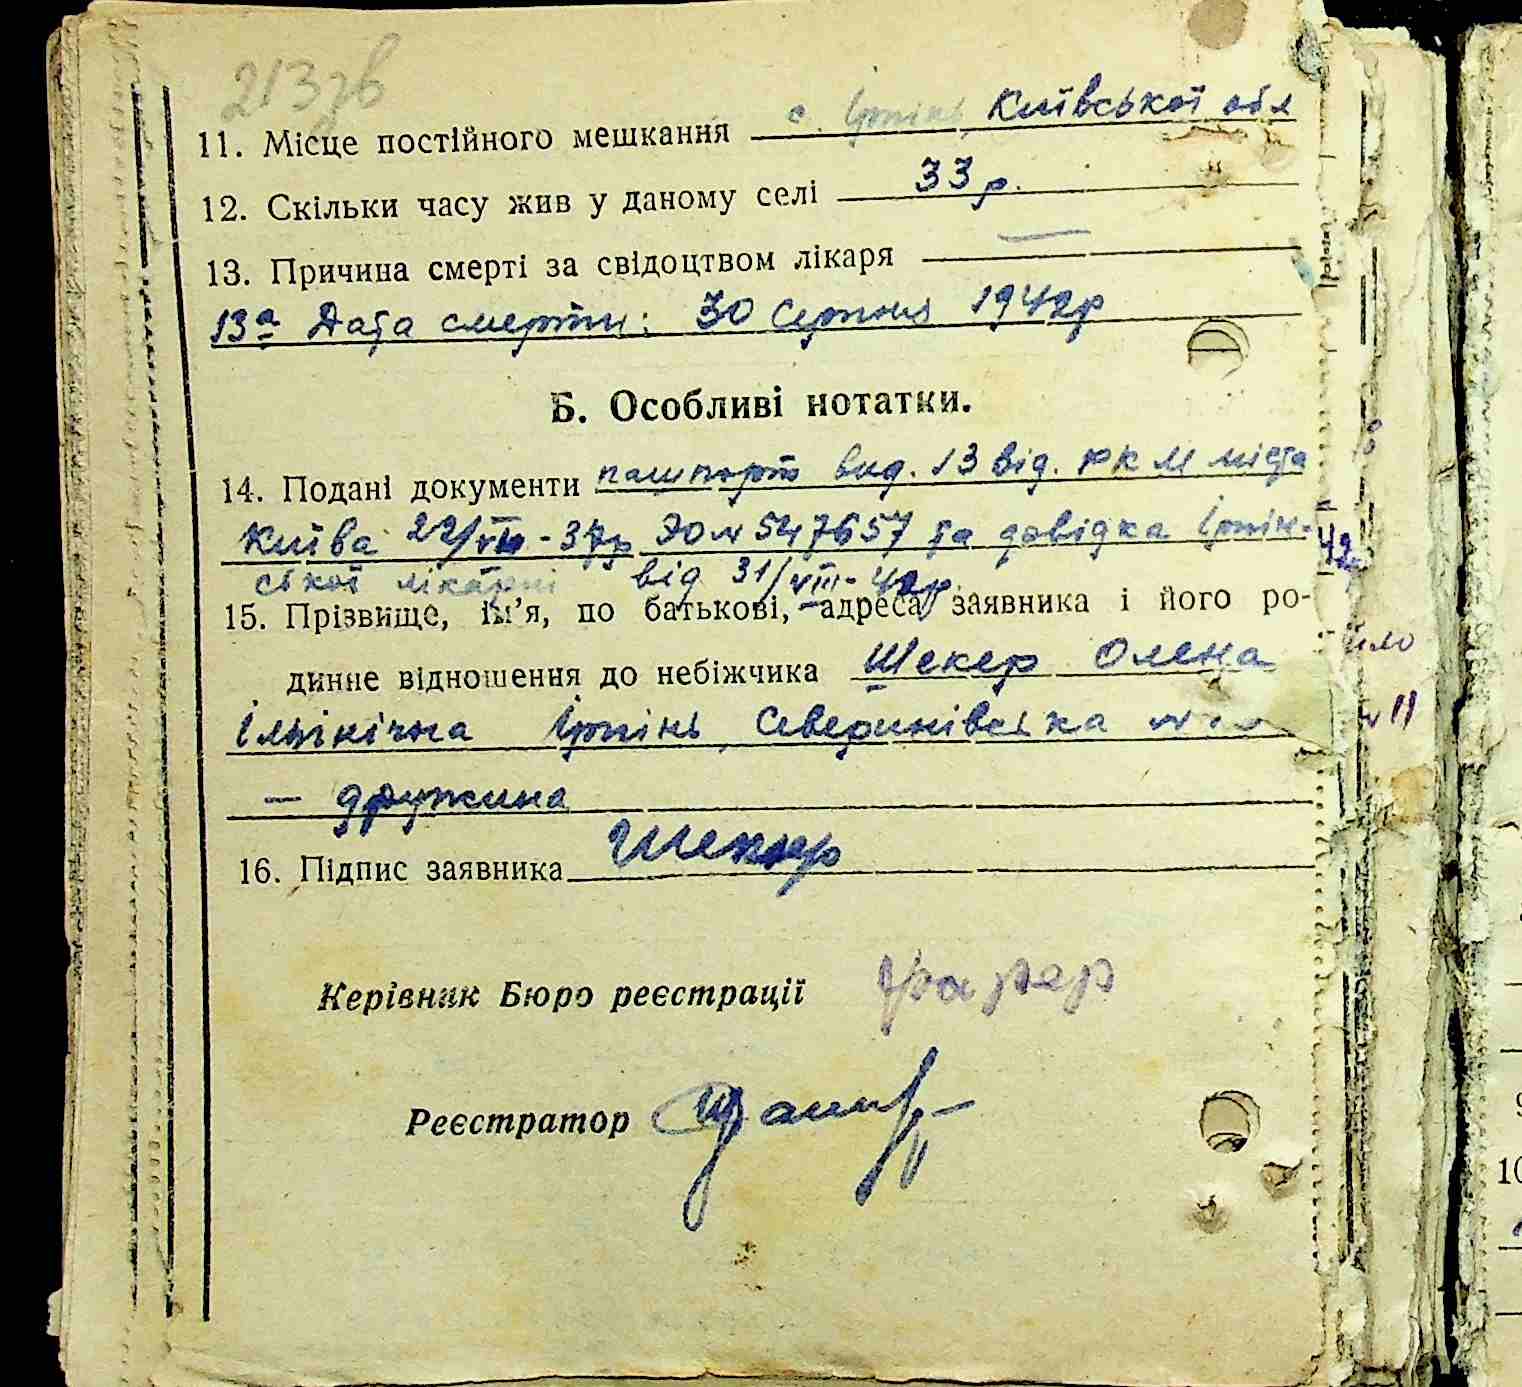 213зв
11. Місце постійного мешкання с. Ірпінь, Київської обл
12. Скільки часу жив у даному селі 33 р.
13. Причина смерті за свідоцтвом лікаря —
13а Дата смерти: 30 Серпня 1942р
Б. Особливі нотатки.
14. Подані документи пашпорт вид. 13 від. РКМ міста
Київа 22/VII-37р № 547657 та довідка Ірпін-
ської лікарні від 31/VIII-42р.
15. Прізвище, ім'я, по батькові, адреса заявника і його ро-
динне відношення до небіжчика Шекер Олена
Ірпінь, Северинівська №
— дружина
16. Підпис заявника Шекер
Керівник Бюро реєстрації
Реєстратор